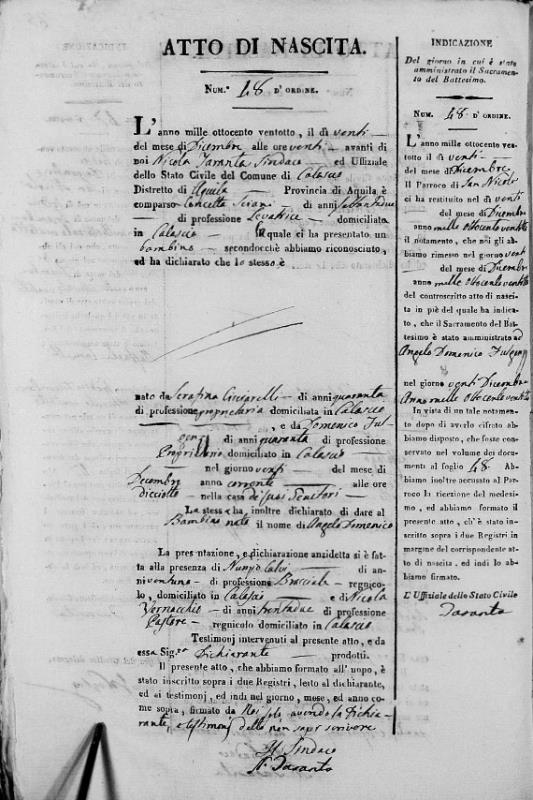 ATTO DI NASCITA.
Num.° 48 d'ordine.
L'anno mille ottocento ventotto, il dì venti
del mese di Dicembre alle ore venti avanti di
noi Nicola Taranta Sindaco ed Uffiziale
dello Stato Civile del Comune di Calascio
Distretto di Aquila Provincia di Aquila è
comparso Concetta di anni settantadue
di professione Levatrice domiciliato
in Calascio Il quale ci ha presentato un
bambino secondocchè abbiamo riconosciuto,
ed ha dichiarato che lo stesso è
nato da Serafina Ciccarelli di anni quaranta
di professione proprietaria domiciliata in Calascio
, e da Domenico Ful
genzj di anni quaranta di professione
Proprietario domiciliato in Calascio
nel giorno venti del mese di
Decembre anno corrente alle ore
diciotto nella casa di suoi Genitori
La stessa ha inoltre dichiarato di dare al
Bambino nato il nome di Angelo Domenico
La presentazione, e dichiarazione anzidetta si è fat-
ta alla presenza di Nunzio di an-
ni ventuno di professione Bracciale regnico-
lo, domiciliato in Calascio e di Nicola
di anni trentadue di professione
Pastore regnicolo domiciliato in Calascio
Testimonj intervenuti al presente atto, e da
essa Sig.ra Dichiarante prodotti.
Il presente atto, che abbiamo formato all'uopo, è
stato inscritto sopra i due Registri, letto al dichiarante,
ed ai testimonj, ed indi nel giorno, mese, ed anno co-
me sopra, firmato da Noi solo avendo la Dichia-
rante, e testimonj detto non saper scrivere
Il Sindaco
N. Taranta
INDICAZIONE
Del giorno in cui è stato
amministrato il Sacramen-
to del Battesimo.
Num. 48 d'ordine.
L'anno mille ottocento ven-
totto il dì venti
del mese di Dicembre
Il Parroco di San Nicola
ci ha restituito nel dì venti
del mese di Dicembre
anno mille ottocento ventotto
il notamento, che noi gli ab-
biamo rimesso nel giorno venti
del mese di Dicembre
anno mille ottocento ventotto
del controscritto atto di nasci-
ta in piè del quale ha indica-
to, che il Sacramento del Bat-
tesimo è stato amministrato ad
Angelo Domenico Fulgenzj
nel giorno venti Dicembre
Anno mille ottocento ventotto
In vista di un tale notamen-
to dopo di averlo cifrato ab-
biamo disposto, che fosse con-
servato nel volume dei docu-
menti al foglio 48 Ab-
biamo inoltre accusato al Par-
roco la ricezione del medesi-
mo, ed abbiamo formato il
presente atto, ch'è stato in-
scritto sopra i due Registri in
margine del corrispondente at-
to di nascita, ed indi lo ab-
biamo firmato.
L'Uffiziale dello Stato Civile
Taranta